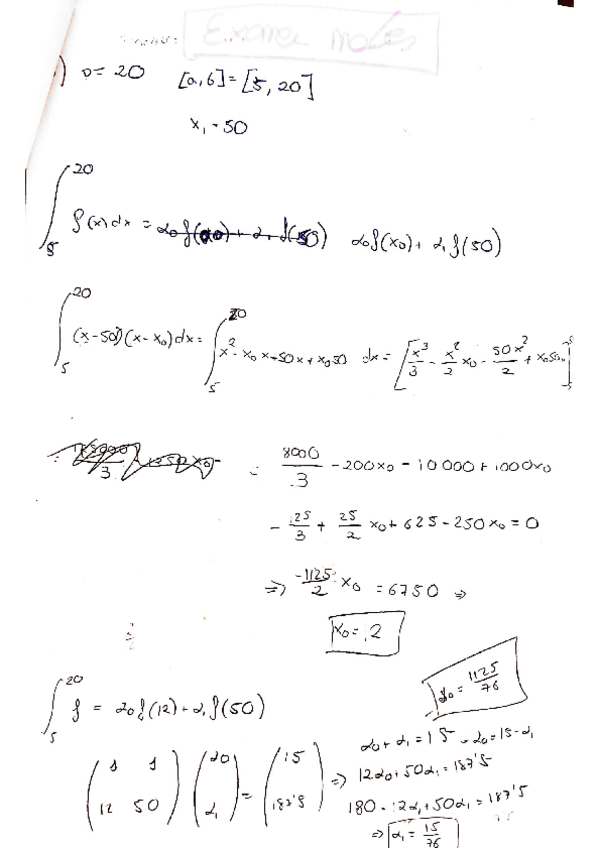 Examen modes
) D=20 [a,b]=[5,20]
x₁=50
∫₅²⁰ f(x)dx = α₀f(x₀)+α₁f(50)
∫₅²⁰ (x-50)(x-x₀)dx = ∫₅²⁰ x²-x₀x-50x+x₀50 dx = [x³/3 - x²/2 x₀ - 50x²/2 + x₀50x]
= 8000/3 -200x₀ -10000+1000x₀
- 125/3 + 25/2 x₀+625-250x₀=0
=> -1125/2 x₀ =6750 =>
x₀=12
α₀=1125/76
∫₅²⁰ f = α₀f(12)+α₁f(50)
α₀+α₁=15 → α₀=15-α₁
(1 1; 12 50)(α₀; α₁)=(15; 187'5) => 12α₀+50α₁=187'5
180-12α₁+50α₁=187'5
=> α₁=15/76